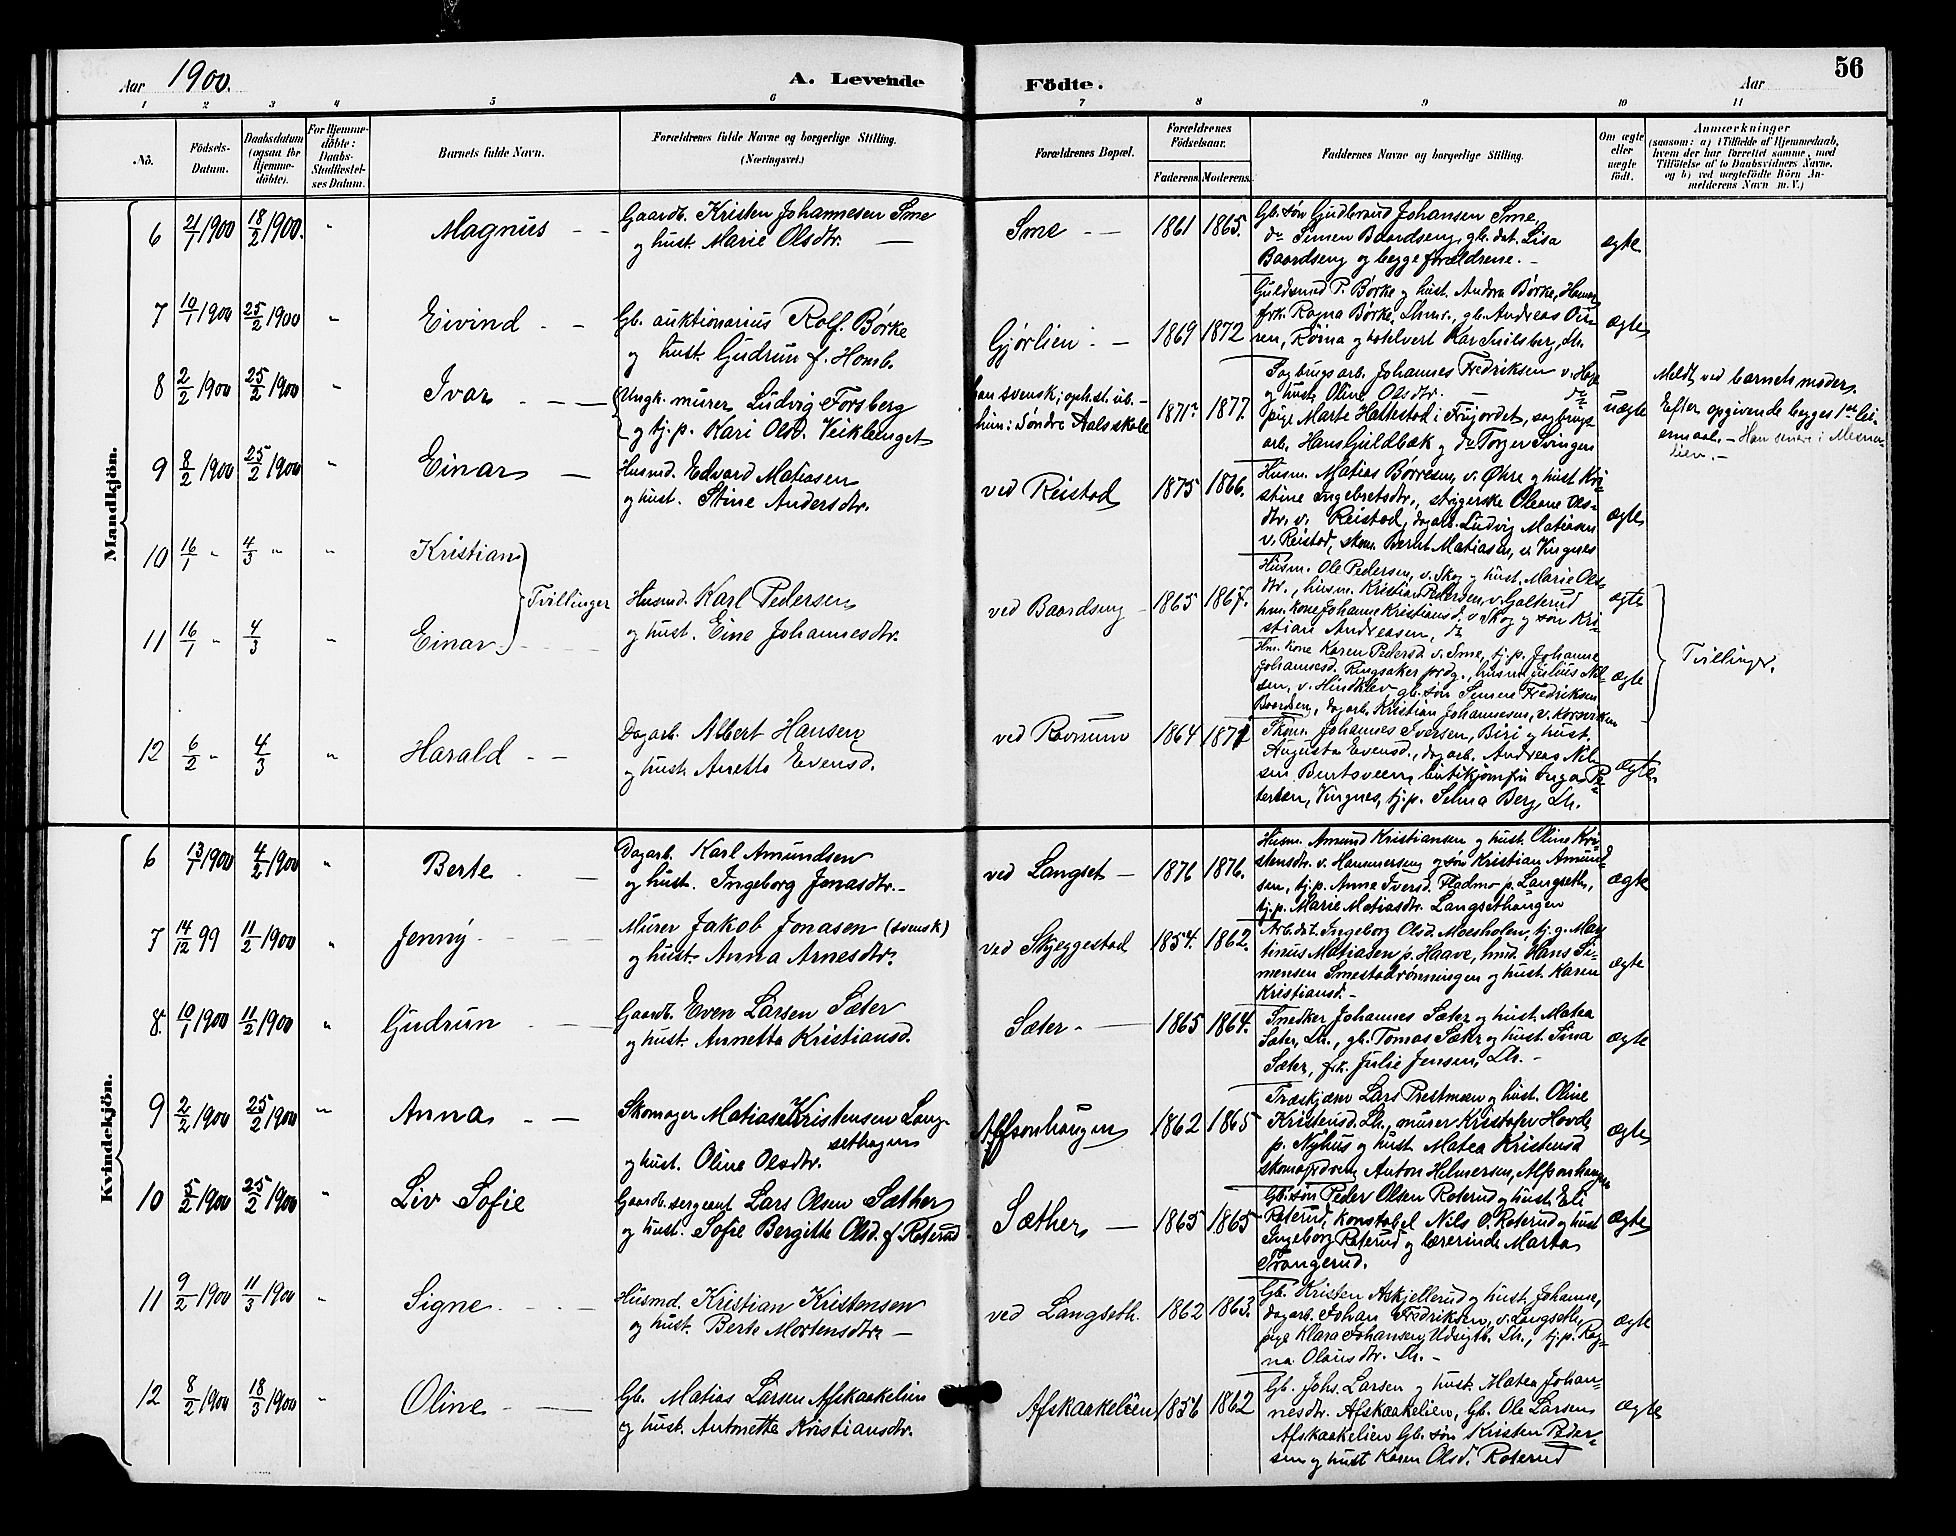 Aar 1900.
A. Levende
Födte.
Aar
56
1 2 3 4 5 6 7 8 9 10 11
No.
Födsels-
Datum.
Daabsdatum
(ogsaa for
Hjemme-
döbte).
For Hjemme-
döbte:
Daabs-
Stadfæstel-
ses Datum.
Barnets fulde Navn.
Forældrenes fulde Navne og borgerlige Stilling.
(Næringsvei.)
Forældrenes Bopæl.
Forældrenes
Födselsaar.
Faderens. Moderens.
Faddernes Navne og borgerlige Stilling.
Om ægte
eller
uægte
födt.
Anmærkninger
(saasom: a) i Tilfælde af Hjemmedaab,
hvem der har forrettet samme, med
Tilföielse af to Daabsvidners Navne,
og b) ved uægtefödte Börn An-
melderens Navn m. V.)
Mandkjön.
6 21/1 1900 18/2 1900. " Magnus
Gaardb. Kristen Johannesen Sme
og hust. Marie Olsdtr.
Sme 1861 1865.
Gb. søn Gudbrand Johansen Sme,
do Simen Baardseng, gb. dat. Lisa
Baardseng og begge forældrene.
ægte
7 10/1 1900 25/2 1900 " Eivind
Gb. auktionarius Rolf. Børke
og hust. Gudrun f. Homb.
Gjørlien 1869 1872
Guldsmed P. Børke og hust. Andra Børke, Hamar
frk. Ragna Børke, Lhmr., gb. Andreas
ægte
8 2/2 1900 25/2 1900 " Ivar
Ungk. murer Ludvig Forsberg
og tj. p. Kari Olsd. Veiklenget
han svensk; oph.st. ub.
hun i Søndre Aals skole
1871? 1877.
Sagbrugsarb. Johannes Fredriksen v.
og hust. Oline Olsdtr.
pige Marte Hattestad i Frujordet, sagbrugs
arb. Hans Guldbak og do Torger Svingen
uægte
Meldt ved barnets moder.
Efter opgivende begges 1ste lei-
ermaal. - Han senere i Mesna-
lien. -
9 8/2 1900 25/2 1900 " Einar
Husmd. Edvard Matiasen
og hust. Stine Andersdtr.
ved Reistad 1875 1866.
Husm. Matias Børresen, v. Øhre og hust. Kri-
stine Ingebretsdtr., strygerske Oleane Ols-
dtr. v. Reistad, dagarb. Ludvig Matiasen
v. Reistad, skom. Bernt Matiasen, v. Vingnes
ægte
10 16/1 " 4/3 " " Kristian
Tvillinger
Husmd. Karl Pedersen
og hust. Eine Johannesdtr.
ved Baardseng 1865 1867.
Husm. Ole Pedersen, v. Skog og hust. Marie Ols-
dtr., husm. Kristian Pedersen v. Galterud
hm. kone Johanne Kristiansd. v. Skog og søn Kri-
stian Andreasen, do
ægte
11 16/1 " 4/3 " Einar
Hm. kone Karen Pedersd. v. Sme, tj. p. Johanne
Johannesd. Ringsaker prdg., husm. Julius Nil-
sen, v. Hindklev, gb. søn Simen Fredriksen
Baardsen, dagarb. Kristian Johannesen, v. Korsviken
ægte
Tvillinger.
12 6/2 " 4/3 " Harald
Dagarb. Albert Hansen
og hust. Anette Evensd.
ved Rovnum 1864 1871
Skom. Johannes Iversen, Biri og hust.
Augusta Evensd., dagarb. Andreas Nil-
sen Buntsveen, butikjomfru Inga Pe-
tersen, Vingnes, tj. p. Selma Berg, Lh.
ægte
Kvindekjön.
6 13/1 1900 4/2 1900 " Berte
Dagarb. Karl Amundsen
og hust. Ingeborg Jonasdtr.
ved Langset 1876 1876.
Husm. Amund Kristiansen og hust. Oline Kri-
stensdtr. v. Hammerseng og søn Kristian Amund-
sen, tj. p. Anne Iversd. Fladmo p. Langseth,
tj. p. Marie Matiasdtr. Langsethaugen
ægte
7 14/12 99 11/2 1900 " Jenny
Murer Jakob Jonasen (svensk)
og hust. Anna Arnesdtr.
ved Skjeggestad 1854. 1862.
Arb. dat. Ingeborg Olsd. Moesholen, tj. g. Mar-
tinius Matiasen p. Haave, hmd. Hans Si-
mensen Smestadrønningen og hust. Karen
Kristiansd.
ægte
8. 10/1 1900 11/2 1900 " Gudrun
Gaardb. Even Larsen Sæter
og hust. Annetta Kristiansd.
Sæter 1865 1864.
Snedker Johannes Sæter og hust. Matea
Sæter, Lh., gb. Tomas Sæter og hust. Sina
Sæter, frk. Julie Jensen, Lh.
ægte
9 2/2 1900 25/2 1900 " Anna
Skomager Matias Kristensen Lang-
sethagen
og hust. Oline Olsdtr.
Alfsonhaugen 1862 1865
Træskjærer Lars Prestmoen og hust. Oline
Kristensd. Lh., murer Kristofer Hovde
p. Nyhus og hust. Matea Kristensd
Anton Helmersen, Alfsonhaugen
ægte
10 5/2 1900 25/2 1900 " Liv Sofie
Gaardb. sergeant Lars Olsen Sæther
og hust. Sofie Bergitte Olsd. f Roterud
Sæther 1865 1865
Gb. søn Peder Olsen Roterud og hust. Eli
Roterud, konstabel Nils O. Roterud og hust
Ingeborg Roterud og lærerinde Marta
Trangerud.
ægte
11 9/2 1900 11/3 1900 " Signe
Husmd. Kristian Kristensen
og hust. Berte Mortensdtr.
ved Langseth. 1862 1863.
Gb. Kristen Askjellerud og hust. Johanne,
dagarb. Johan Fredriksen, v. Langseth,
pige Klara Johansen, Udsigten Lh., tj. p. Rag-
na Olausdtr. Lh.
ægte
12 8/2 1900 18/3 1900 " Oline
Gb. Matias Larsen Afskaakelien
og hust. Antnette Kristiansdtr.
Afskaakelien 1856 1862
Gb. Johs. Larsen og hust. Matea Johan-
nesdtr. Afskaakelien, Gb. Ole Larsen
Afskaakelien Gb. søn Kristen Peder-
sen og hust Karen Olsd. Roterud
ægte